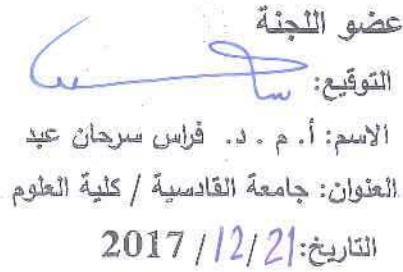 عضو اللجنة
التوقيع:
الاسم: أ. م . د. فراس سرحان عبد
العنوان: جامعة القادسية / كلية العلوم
التاريخ: 21/ 12/ 2017